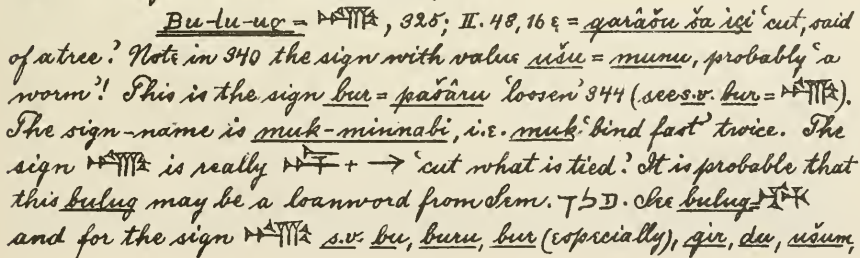 Bu-lu-ug = , 325; II. 48, 16 e = garâšu ša içi 'cut, said
of a tree.' Note in 340 the sign with value ušu = munu, probably 'a
worm'! This is the sign bur = pašâru 'loosen' 344 (see s.v. bur = ).
The sign-name is muk-minnabi, i.e. muk 'bind fast' twice. The
sign is really + 'cut what is tied.' It is probable that
this bulug may be a loanword from Sem. פלך. See bulug =
and for the sign s.v. bu, buru, bur (especially), gir, du, ušum,